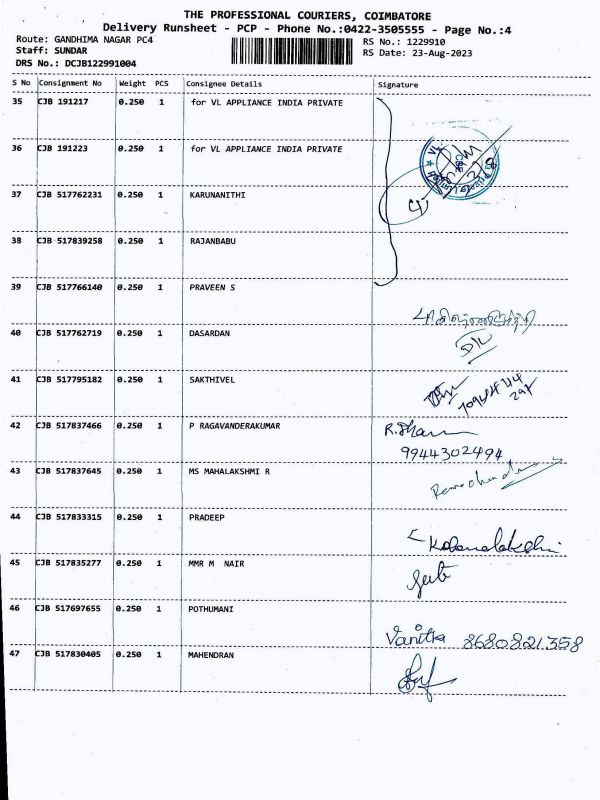 THE PROFESSIONAL COURIERS, COIMBATORE
Delivery Runsheet - PCP - Phone No.:0422-3505555 - Page No.:4
Route: GANDHIMA NAGAR PC4
Staff: SUNDAR
DRS No.: DCJB122991004
RS No.: 1229910
RS Date: 23-Aug-2023
S No Consignment No Weight PCS Consignee Details Signature
35 CJB 191217 0.250 1 for VL APPLIANCE INDIA PRIVATE
36 CJB 191223 0.250 1 for VL APPLIANCE INDIA PRIVATE
37 CJB 517762231 0.250 1 KARUNANITHI
38 CJB 517839258 0.250 1 RAJANBABU
39 CJB 517766140 0.250 1 PRAVEEN S
40 CJB 517762719 0.250 1 DASARDAN
41 CJB 517795182 0.250 1 SAKTHIVEL
42 CJB 517837466 0.250 1 P RAGAVANDERAKUMAR
9944302494
43 CJB 517837645 0.250 1 MS MAHALAKSHMI R
44 CJB 517833315 0.250 1 PRADEEP
45 CJB 517835277 0.250 1 MMR M NAIR
46 CJB 517697655 0.250 1 POTHUMANI
Vanitha 8680821358
47 CJB 517830405 0.250 1 MAHENDRAN